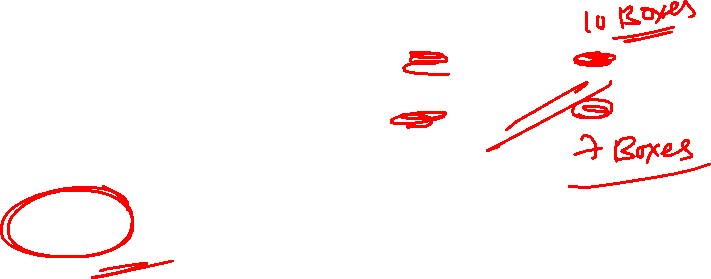 10 Boxes
7 Boxes